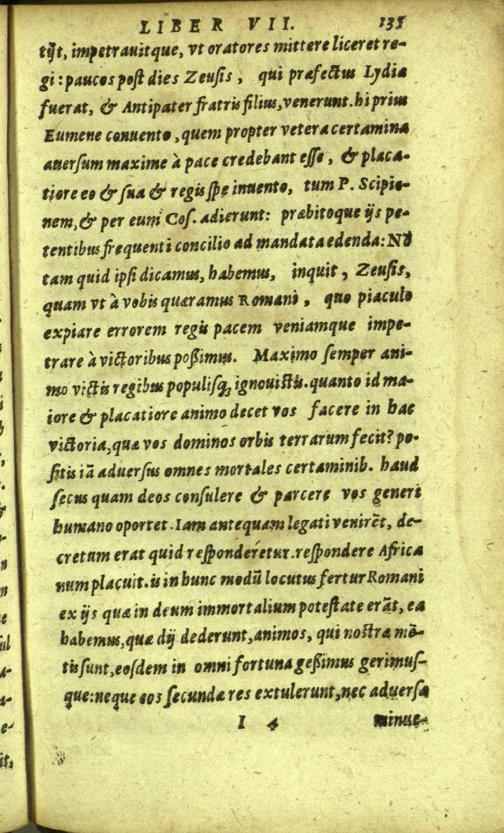 LIBER VII. 135
tijt, impetrauitque, vt oratores mittere liceret re-
gi: paucos post dies Zeusis, qui præfectus Lydiæ
fuerat, & Antipater fratris filius, venerunt. hi prius
Eumene conuento, quem propter vetera certamina
auersum maxime à pace credebant esse, & placa-
tiore eo & sua & regis spe inuento, tum P. Scipio-
nem, & per eum Cos. adierunt: præbitoque ijs pe-
tentibus frequenti concilio ad mandata edenda: Nō
tam quid ipsi dicamus, habemus, inquit, Zeusis,
quam vt à vobis quæramus Romani, quo piaculo
expiare errorem regis pacem veniamque impe-
trare à victoribus possimus. Maximo semper ani-
mo victis regibus populisq; ignouistis. quanto id ma-
iore & placatiore animo decet vos facere in hac
victoria, quæ vos dominos orbis terrarum fecit? po-
sitis iā aduersus omnes mortales certaminib. haud
secus quam deos consulere & parcere vos generi
humano oportet. Iam antequam legati venirēt, de-
cretum erat quid responderetur. respondere Africa
num placuit. is in hunc modū locutus fertur Romani
ex ijs quæ in deum immortalium potestate erāt, ea
habemus, quæ dij dederunt, animos, qui nostræ mē-
tis sunt, eosdem in omni fortuna gessimus gerimus-
que: neque eos secundæ res extulerunt, nec aduersæ
I 4 minue-